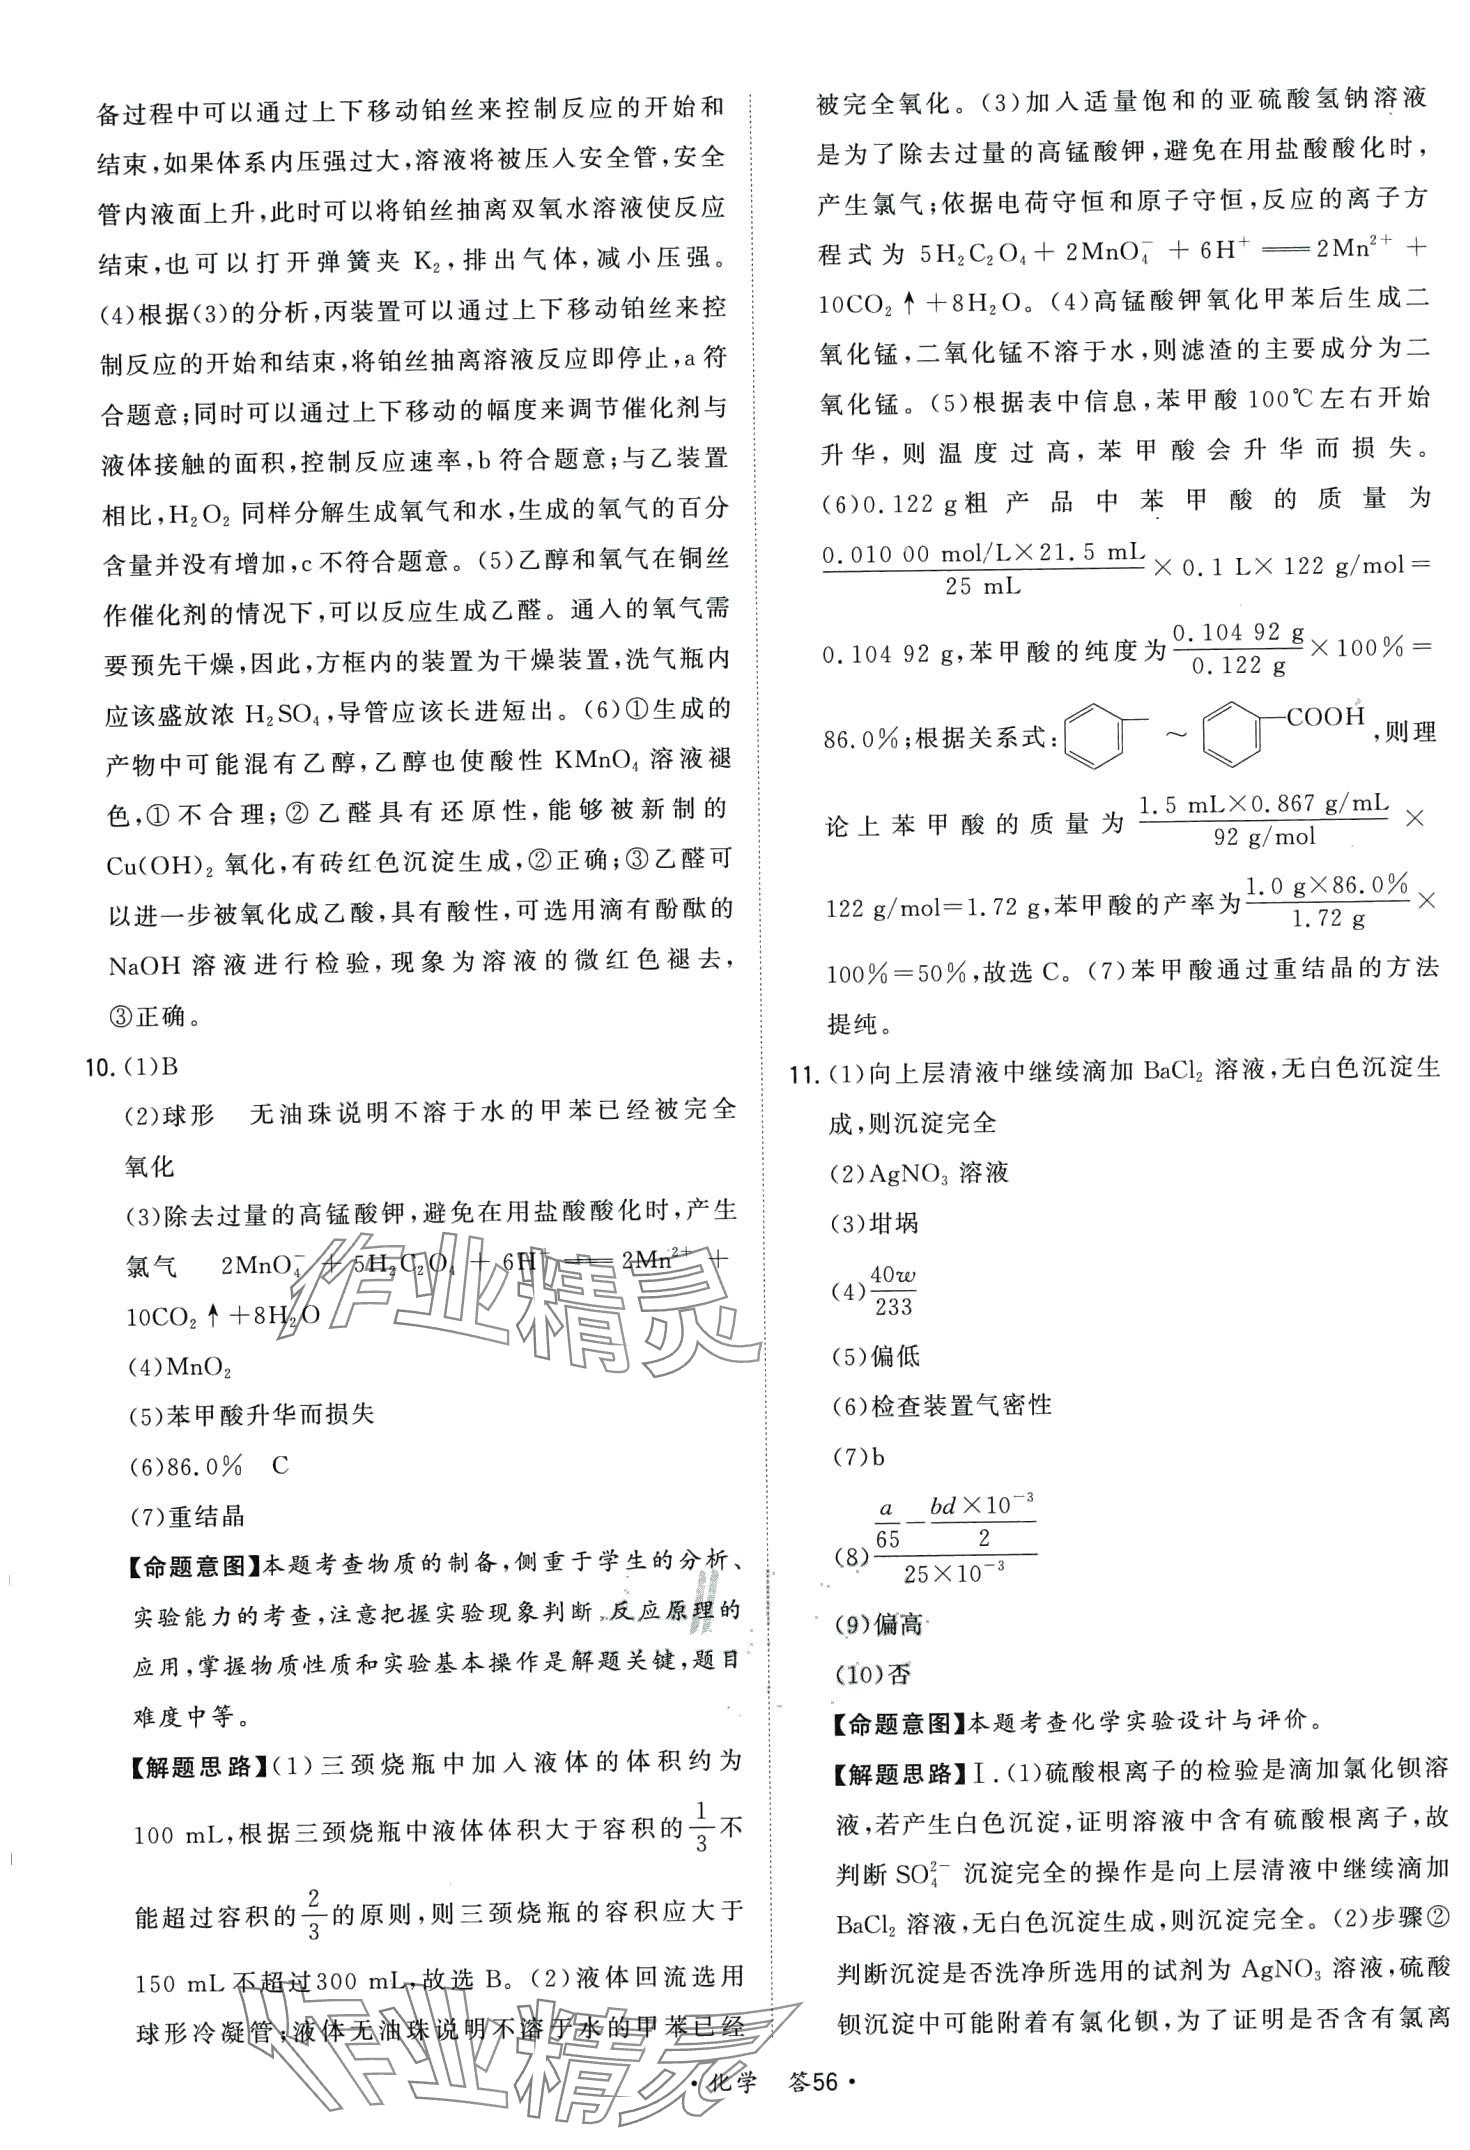 备过程中可以通过上下移动铂丝来控制反应的开始和
结束,如果体系内压强过大,溶液将被压入安全管,安全
管内液面上升,此时可以将铂丝抽离双氧水溶液使反应
结束,也可以打开弹簧夹 K₂,排出气体,减小压强。
(4)根据(3)的分析,丙装置可以通过上下移动铂丝来控
制反应的开始和结束,将铂丝抽离溶液反应即停止,a 符
合题意;同时可以通过上下移动的幅度来调节催化剂与
液体接触的面积,控制反应速率,b 符合题意;与乙装置
相比,H₂O₂ 同样分解生成氧气和水,生成的氧气的百分
含量并没有增加,c 不符合题意。(5)乙醇和氧气在铜丝
作催化剂的情况下,可以反应生成乙醛。通入的氧气需
要预先干燥,因此,方框内的装置为干燥装置,洗气瓶内
应该盛放浓 H₂SO₄,导管应该长进短出。(6)①生成的
产物中可能混有乙醇,乙醇也使酸性 KMnO₄ 溶液褪
色,①不合理;②乙醛具有还原性,能够被新制的
Cu(OH)₂ 氧化,有砖红色沉淀生成,②正确;③乙醛可
以进一步被氧化成乙酸,具有酸性,可选用滴有酚酞的
NaOH 溶液进行检验,现象为溶液的微红色褪去,
③正确。
10. (1)B
(2)球形 无油珠说明不溶于水的甲苯已经被完全
氧化
(3)除去过量的高锰酸钾,避免在用盐酸酸化时,产生
氯气 2MnO₄⁻ + 5H₂C₂O₄ + 6H⁺ ══ 2Mn²⁺ +
10CO₂↑+8H₂O
(4)MnO₂
(5)苯甲酸升华而损失
(6)86.0% C
(7)重结晶
【命题意图】本题考查物质的制备,侧重于学生的分析、
实验能力的考查,注意把握实验现象判断、反应原理的
应用,掌握物质性质和实验基本操作是解题关键,题目
难度中等。
【解题思路】(1)三颈烧瓶中加入液体的体积约为
100 mL,根据三颈烧瓶中液体体积大于容积的 1/3 不
能超过容积的 2/3 的原则,则三颈烧瓶的容积应大于
150 mL 不超过300 mL,故选 B。(2)液体回流选用
球形冷凝管;液体无油珠说明不溶于水的甲苯已经
被完全氧化。(3)加入适量饱和的亚硫酸氢钠溶液
是为了除去过量的高锰酸钾,避免在用盐酸酸化时,
产生氯气;依据电荷守恒和原子守恒,反应的离子方
程式为 5H₂C₂O₄+2MnO₄⁻ +6H⁺ ══2Mn²⁺ +
10CO₂↑+8H₂O。(4)高锰酸钾氧化甲苯后生成二
氧化锰,二氧化锰不溶于水,则滤渣的主要成分为二
氧化锰。(5)根据表中信息,苯甲酸 100℃左右开始
升华,则温度过高,苯甲酸会升华而损失。
(6)0.122 g粗产品中苯甲酸的质量为
0.010 00 mol/L×21.5 mL/25 mL × 0.1 L× 122 g/mol=
0.104 92 g,苯甲酸的纯度为 0.104 92 g/0.122 g ×100%=
86.0%;根据关系式: ~ COOH,则理
论上苯甲酸的质量为 1.5 mL×0.867 g/mL/92 g/mol ×
122 g/mol=1.72 g,苯甲酸的产率为 1.0 g×86.0%/1.72 g ×
100%=50%,故选 C。(7)苯甲酸通过重结晶的方法
提纯。
11. (1)向上层清液中继续滴加 BaCl₂ 溶液,无白色沉淀生
成,则沉淀完全
(2)AgNO₃ 溶液
(3)坩埚
(4)40w/233
(5)偏低
(6)检查装置气密性
(7)b
(8)(a/65 − bd×10⁻³/2)/(25×10⁻³)
(9)偏高
(10)否
【命题意图】本题考查化学实验设计与评价。
【解题思路】Ⅰ.(1)硫酸根离子的检验是滴加氯化钡溶
液,若产生白色沉淀,证明溶液中含有硫酸根离子,故
判断 SO₄²⁻ 沉淀完全的操作是向上层清液中继续滴加
BaCl₂ 溶液,无白色沉淀生成,则沉淀完全。(2)步骤②
判断沉淀是否洗净所选用的试剂为 AgNO₃ 溶液,硫酸
钡沉淀中可能附着有氯化钡,为了证明是否含有氯离
• 化学 答56 •
作业精灵
作业精灵